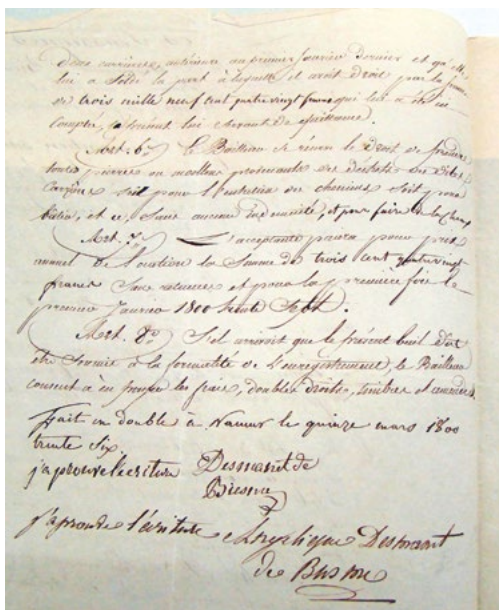 deux carrières, antérieure au premier Janvier dernier et qu'elle
lui a soldé la part à laquelle il avait droit par la somme
de trois mille neuf cent quatre vingt francs qui lui a été
comptée, lui servant de quittance.
Art. 6º Le Bailleur se réserve le droit de prendre
toutes pierres ou moellons provenants des déchets des dites
Carrières soit pour l'entretien des chemins soit pour
bâtir, et ce, sans aucune indemnité, et pour faire de la Chaux
Art. 7º L'acceptante paiera pour prix
annuel de location la somme de trois cent quatre vingt
francs sans retenues et pour la première fois le
premier Janvier 1800 trente Sept.
Art. 8º S'il arrivait que le présent bail dût
être soumis à la formalité de l'enregistrement, le Bailleur
consent à en les frais, doubles droits, timbres et amendes.
Fait en double à Namur le quinze mars 1800
trente Six.
j'aprouve l'ecriture Desmanet de
Biesme
j'aprouve l'écriture Angelique Desmanet
de